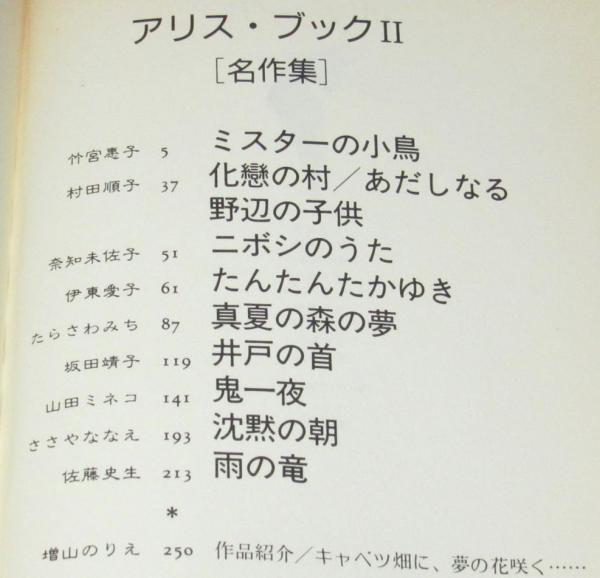 アリス・ブックII
［名作集］
竹宮惠子 5 ミスターの小鳥
村田順子 37 化戀の村／あだしなる
野辺の子供
奈知未佐子 51 ニボシのうた
伊東愛子 61 たんたんたかゆき
たらさわみち 87 真夏の森の夢
坂田靖子 119 井戸の首
山田ミネコ 141 鬼一夜
ささやななえ 193 沈黙の朝
佐藤史生 213 雨の竜
*
増山のりえ 250 作品紹介／キャベツ畑に、夢の花咲く……